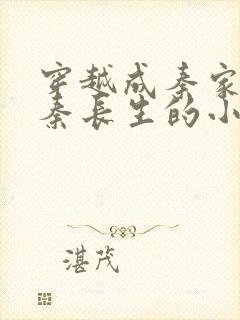 穿越成秦家
秦長生的小
湛茂